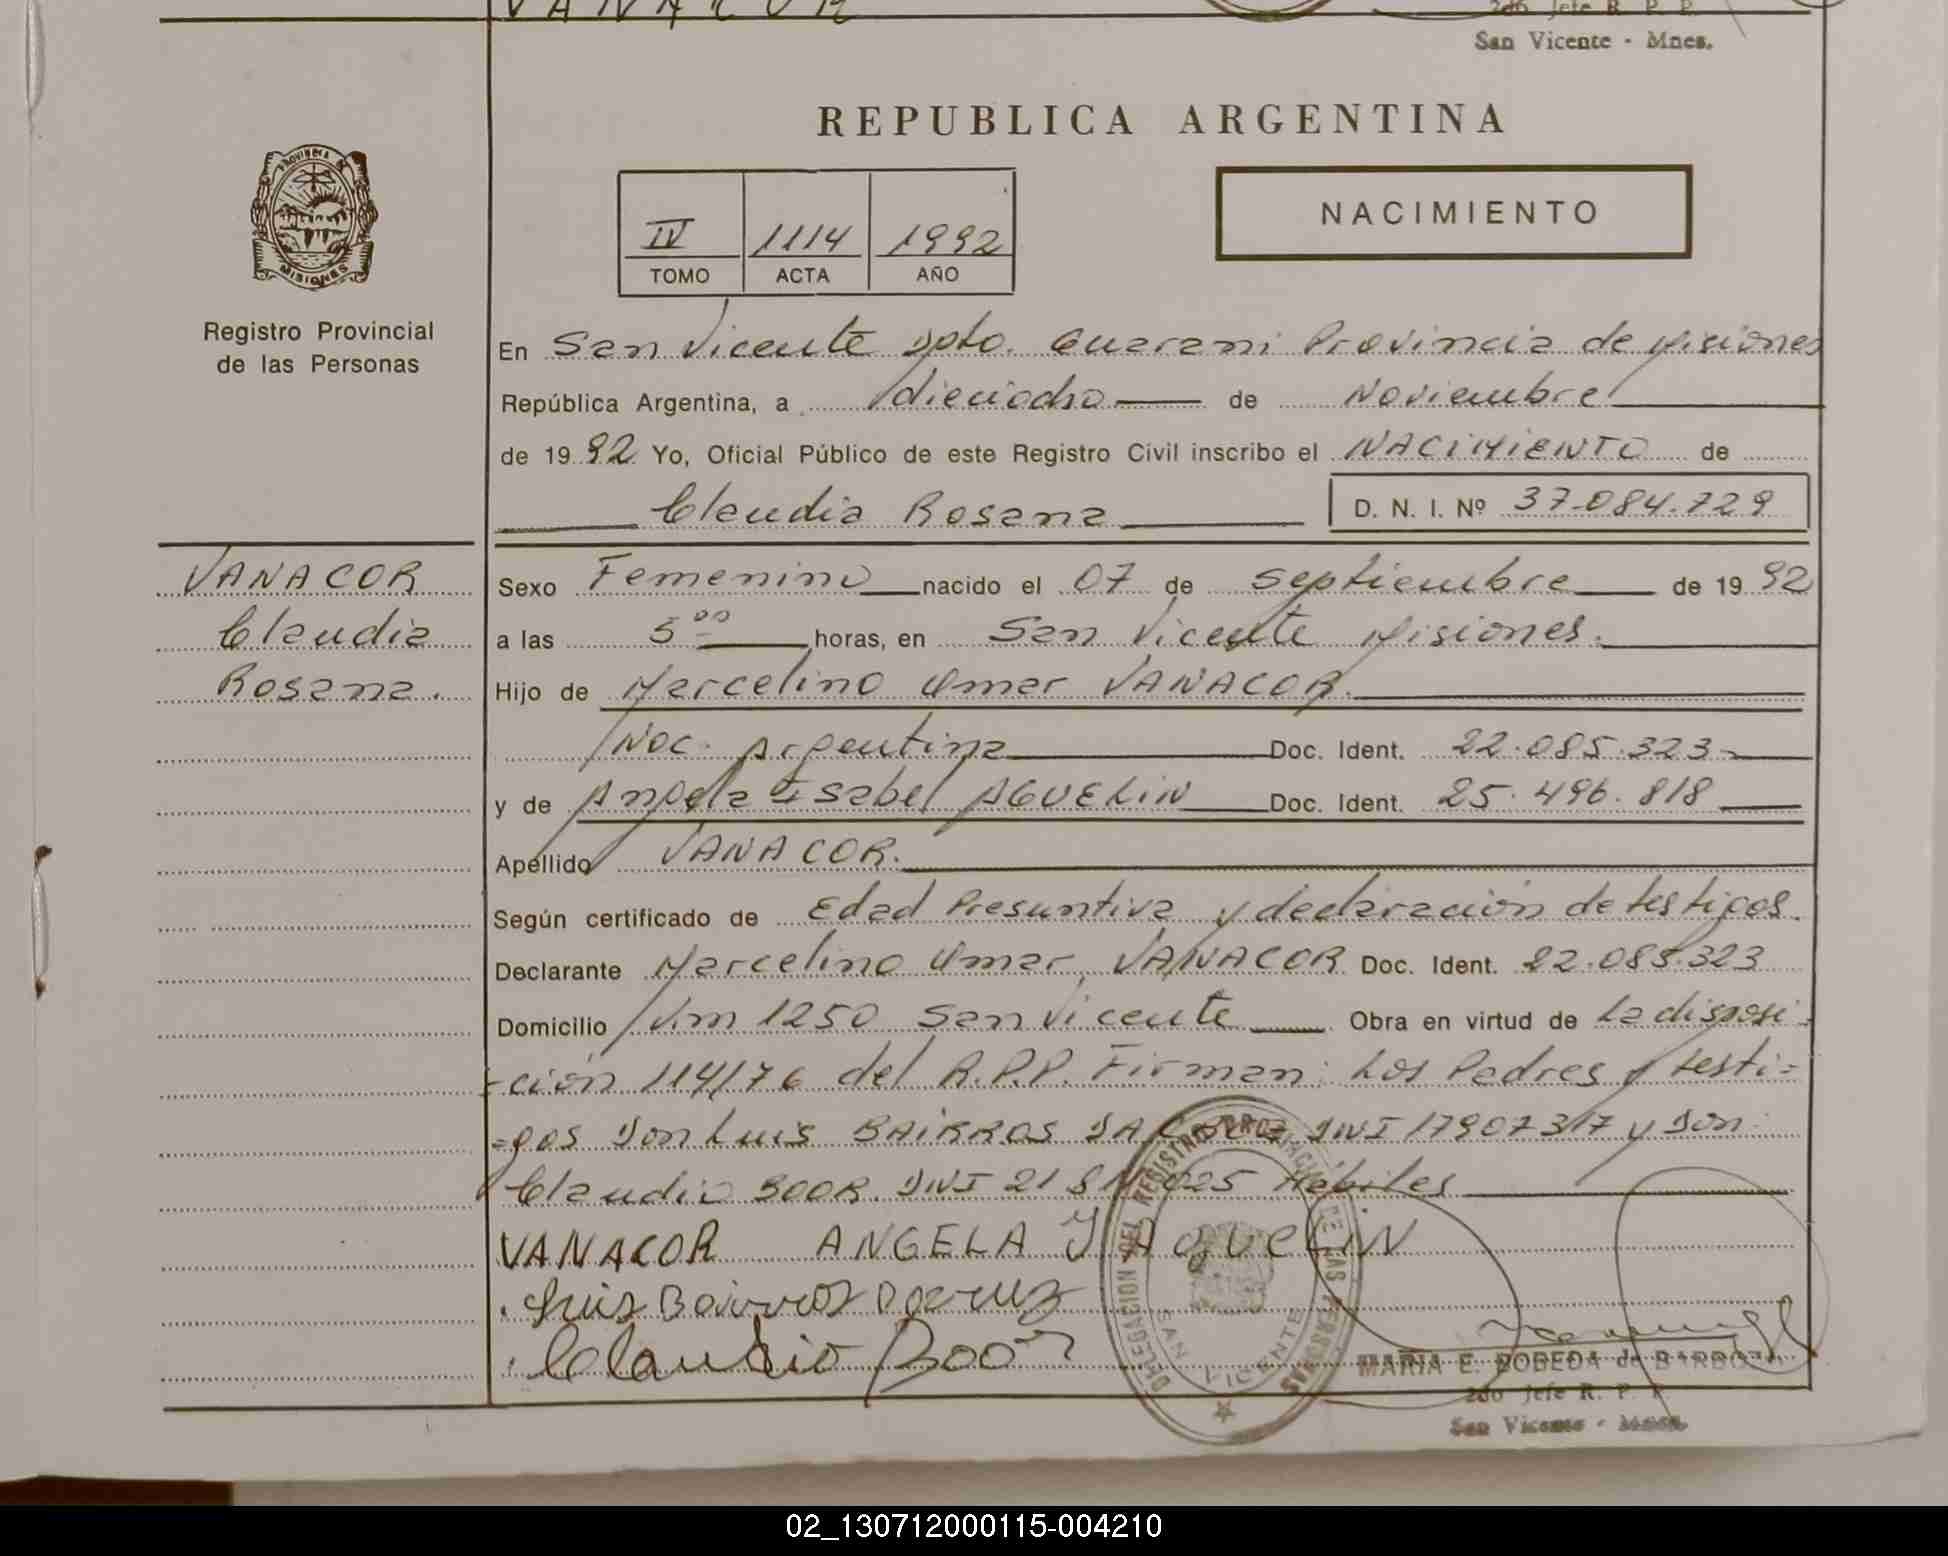 VANACOR
2do Jefe R. P. P.
San Vicente - Mnes.
REPUBLICA ARGENTINA
PROVINCIA DE
MISIONES
IV 1114 1992
TOMO ACTA AÑO
NACIMIENTO
Registro Provincial
de las Personas
En San Vicente Dpto. Guarani Provincia de Misiones
República Argentina, a dieciocho de Noviembre
de 1992 Yo, Oficial Público de este Registro Civil inscribo el NACIMIENTO de
Claudia Rosana D. N. I. Nº 37.084.729
VANACOR
Claudia
Rosana.
Sexo Femenino nacido el 07 de septiembre de 1992
a las 5 00 horas, en San Vicente Misiones.
Hijo de Marcelino Omar VANACOR.
Nac. Argentina Doc. Ident. 22.085.323
y de Angela Isabel AGUELIN Doc. Ident. 25.496.818
Apellido VANACOR.
Según certificado de Edad Presuntiva y declaración de testigos.
Declarante Marcelino Omar VANACOR Doc. Ident. 22.085.323
Domicilio Km 1250 San Vicente Obra en virtud de la disposi-
-ción 114/76 del R.P.P. Firman: Los Padres y testi-
-gos Don Luis BAIRROS DACRUZ DNI 17907317 y Don
Claudio BOOR. DNI 21 025 Hábiles
VANACOR ANGELA Y Aguelin
Luis Bairros Dacruz
Claudio Boor
DELEGACION DEL REGISTRO PROVINCIAL DE LAS PERSONAS
SAN VICENTE
MARIA E. POBEDA de BARBOZA
2do Jefe R. P. P.
San Vicente - Mnes.
02_130712000115-004210